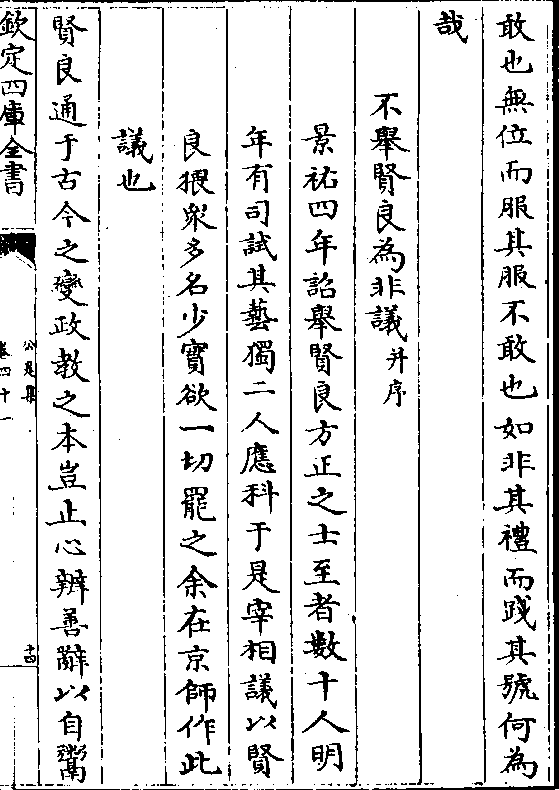 敢也無位而服其服不敢也如非其禮而踐其號何為
哉
不舉賢良為非議并序
景祐四年詔舉賢良方正之士至者數十人明
年有司試其藝獨二人應科于是宰相議以賢
良猥衆多名少實欲一切罷之余在京師作此
議也
賢良通于古今之變政教之本豈止心辨善辭以自鬻
欽定四庫全書
公是集
卷四十一
十四